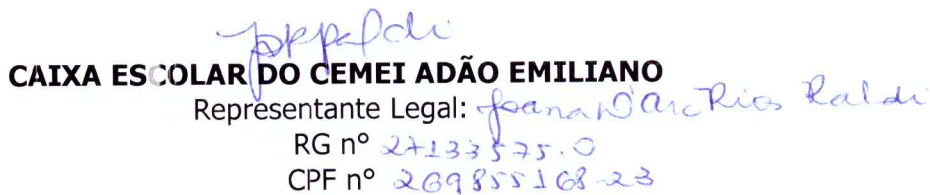 CAIXA ESCOLAR DO CEMEI ADÃO EMILIANO
Representante Legal: Joana D'Arc Rios Raldi
RG nº 27133575.0
CPF nº 269855168-23